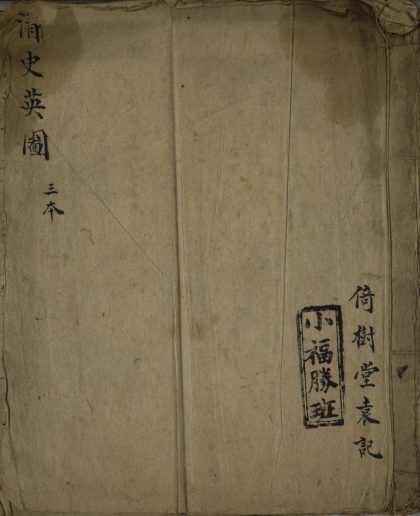 清史英圖
三本
倚樹堂袁記
小福勝班